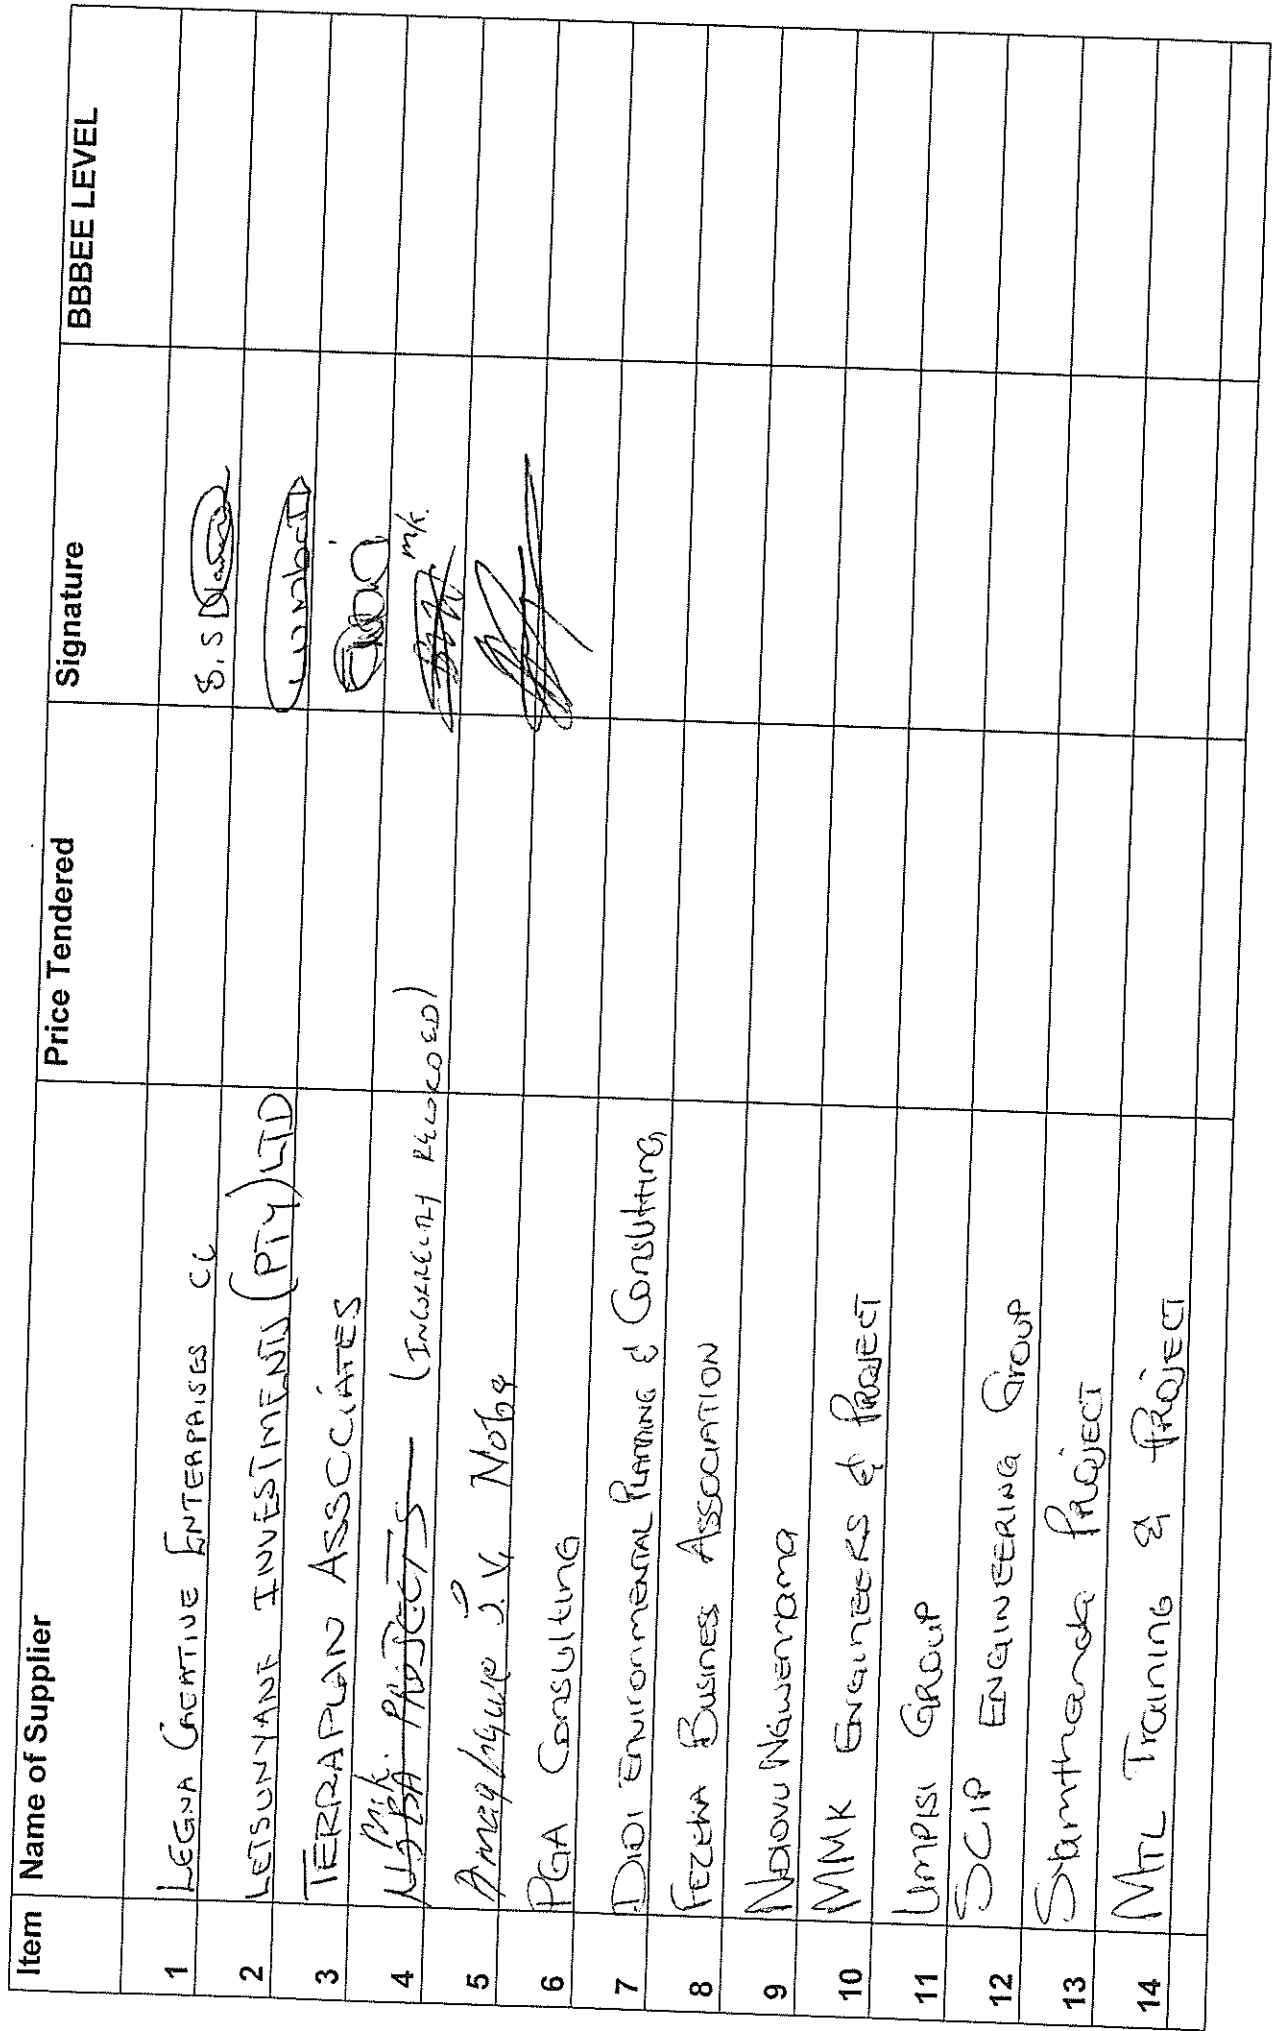 Item Name of Supplier Price Tendered Signature BBBEE LEVEL
1 LEGNA CREATIVE ENTERPRISES CC S.S
2 LETSUNYANE INVESTMENTS (PTY) LTD
3 TERRAPLAN ASSOCIATES
4 PROJECTS (INCORRECTLY RECORDED) M/K.
5 J.V. Noba
6 PGA Consulting
7 DIDI ENVIRONMENTAL PLANNING & Consulting
8 FEZEKA BUSINESS ASSOCIATION
9 NDLOVU NGWENYAMA
10 MMK ENGINEERS & PROJECT
11 UMPISI GROUP
12 SCIP ENGINEERING GROUP
13 Siyamthanda PROJECT
14 MTL Training & PROJECT